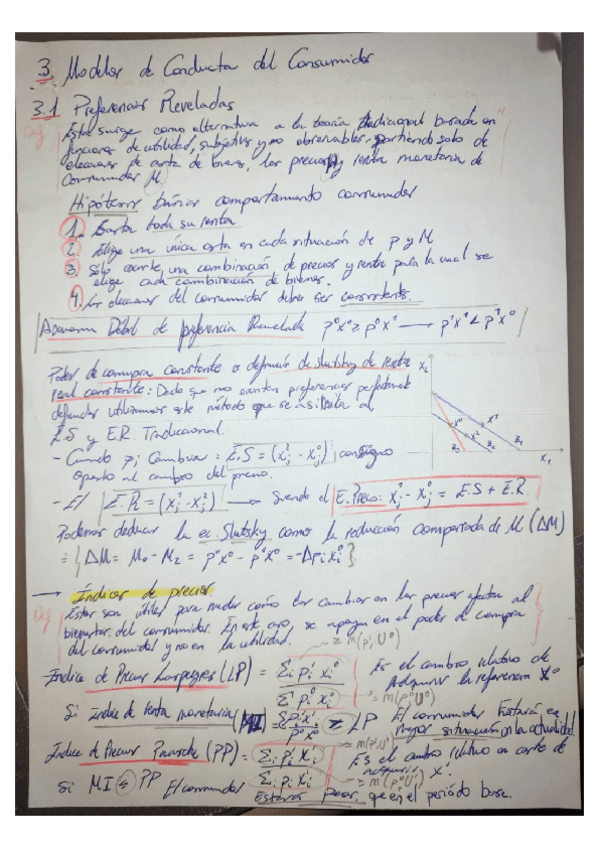 3. Modelos de Conducta del Consumidor
3.1 Preferencias Reveladas
Esta surge como alternativa a la teoría tradicional basada en
funciones de utilidad, subjetivas y no observables, partiendo solo de
elecciones de cesta de bienes, los precios y renta monetaria de
consumidor M
Hipótesis básicas comportamiento consumidor
1. Gasta toda su renta
2. Elige una única cesta en cada situación de p y M
3. Sólo existe una combinación de precios y renta para la cual se
elige cada combinación de bienes.
4. Las elecciones del consumidor deben ser consistentes.
Axioma Débil de preferencia Revelada p⁰x⁰ ≥ p⁰x¹ → p¹x¹ < p¹x⁰
Poder de compra constante o definición de Slutsky de renta
real constante: Dado que no existen preferencias
definidas utilizamos este método que se asimila al
E.S y E.R. Tradicional.
- Cuando pj cambia: E.S = (xj² - xj⁰) consigno
opuesto al cambio del precio.
- El E.R = (xj¹ - xj²) → Siendo el E.Precio: xj¹ - xj⁰ = E.S + E.R.
X₂
X⁰ X¹ X²
B₀ B₂ B₁ X₁
Podemos deducir la ec. Slutsky como la reducción comportada de M (ΔM)
= {ΔM = M₀ - M₂ = p⁰x⁰ - p¹x⁰ = -Δpi xi⁰}
→ Índices de precios
Estos son útiles para medir cómo los cambios en los precios afectan al
bienestar del consumidor. En este caso, se apoya en el poder de compra
del consumidor y no en la utilidad.
- Índice de Precios Laspeyres (LP) = Σi pi¹ xi⁰ / Σi pi⁰ xi⁰ Es el cambio relativo de
adquirir la referencia X⁰
≥ m(p¹, U⁰)
= m(p⁰U⁰)
Si Índice de renta monetaria (MI) = Σp¹x¹ / p⁰x⁰ ≥ LP El consumidor estará en
mejor situación en la actualidad
Índice de Precios Paasche (PP) = Σi pi¹ xi¹ / Σi pi⁰ xi¹ Es el cambio relativo en coste de
adquirir X¹.
= m(p¹,U¹)
≥ m(p⁰,U¹)
Si MI ≤ PP El consumidor estará peor que en el período base.